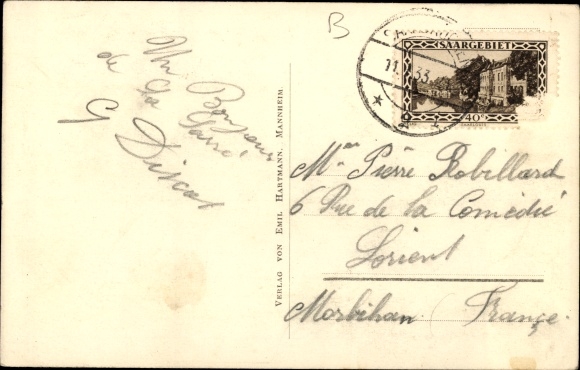 B
Un Bonjour
de La Sarre
G Discas
VERLAG VON EMIL HARTMANN, MANNHEIM.
11. 33.
SAARGEBIET
40
Mme Pierre Robillard
6 Rue de la Comédie
Lorient
Morbihan France.